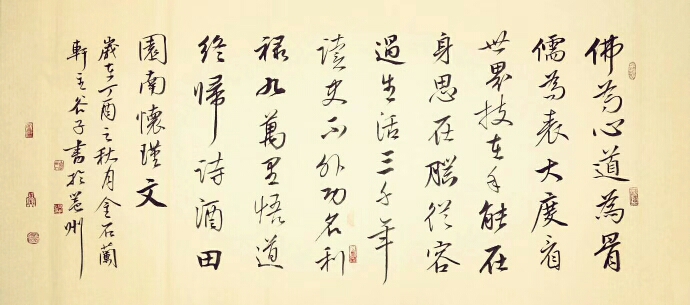 佛为心道為骨
儒为表大度看
世界技在手能在
身思在腦從容
過生活三千年
读史不外功名利
禄九萬里悟道
终歸诗酒田
園南懷瑾文
歲在丁酉之秋月金石蘭
軒主谷子書於